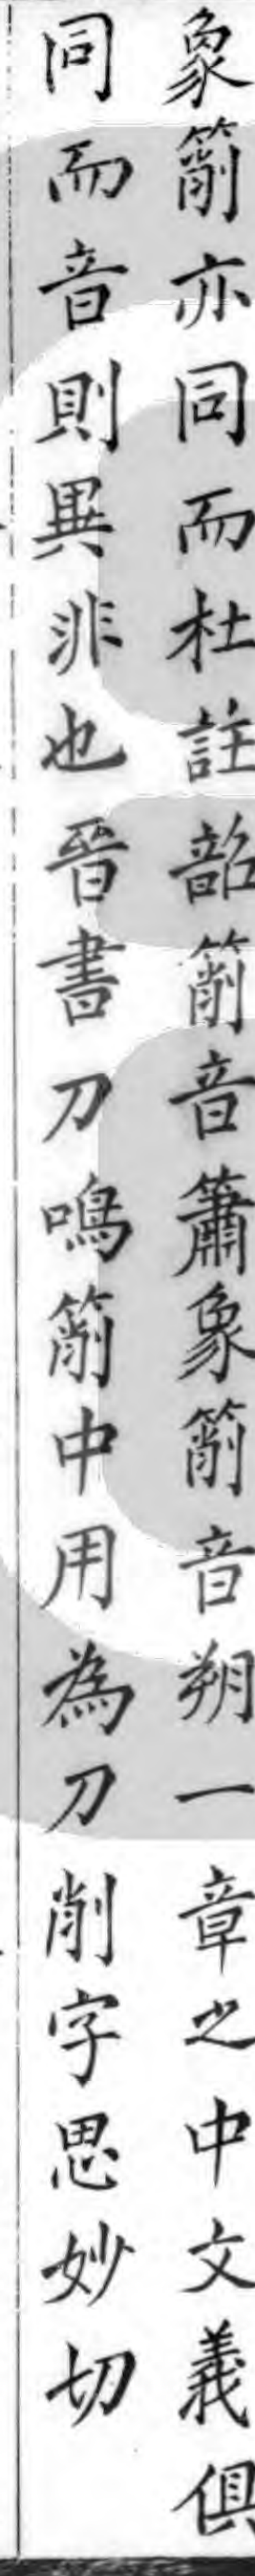 象箾亦同而杜註韶箾音簫象箾音朔一章之中文義俱
同而音則異非也晉書刀鳴箾中用為刀削字思妙切